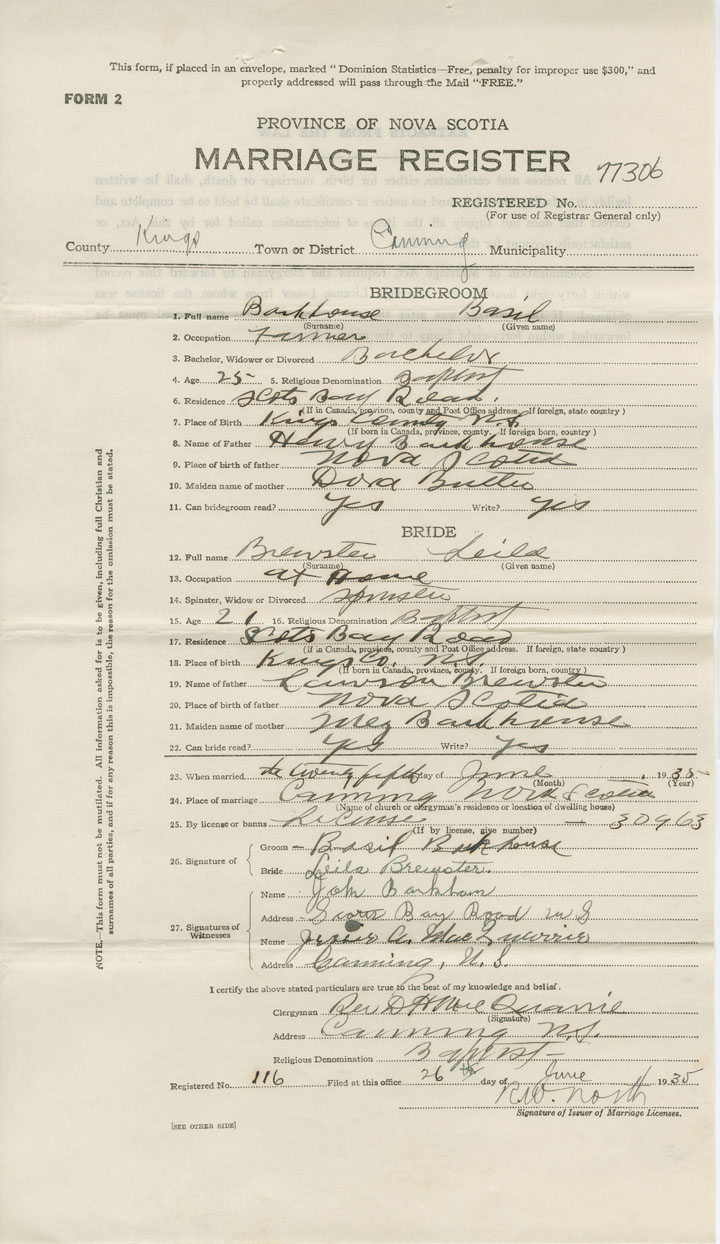 This form, if placed in an envelope, marked "Dominion Statistics—Free, penalty for improper use $300," and
properly addressed will pass through the Mail "FREE."
FORM 2
PROVINCE OF NOVA SCOTIA
MARRIAGE REGISTER 77306
REGISTERED No.
(For use of Registrar General only)
County Kings Town or District Canning Municipality
BRIDEGROOM
1. Full name Barkhouse Basil
(Surname) (Given name)
2. Occupation Farmer
3. Bachelor, Widower or Divorced Bachelor
4. Age 25 5. Religious Denomination Baptist
6. Residence Scots Bay Road.
(If in Canada, province, county and Post Office address. If foreign, state country)
7. Place of Birth Kings County N.S.
(If born in Canada, province, county. If foreign born, country)
8. Name of Father Henry Barkhouse
9. Place of birth of father Nova Scotia
10. Maiden name of mother Dora
11. Can bridegroom read? Yes Write? yes
BRIDE
12. Full name Brewster Leila
(Surname) (Given name)
13. Occupation at Home
14. Spinster, Widow or Divorced Spinster
15. Age 21 16. Religious Denomination Baptist
17. Residence Scots Bay Road
(If in Canada, province, county and Post Office address. If foreign, state country)
18. Place of birth Kings Co. N.S.
(If born in Canada, province, county. If foreign born, country)
19. Name of father Lawson Brewster
20. Place of birth of father Nova Scotia
21. Maiden name of mother Meg Barkhouse
22. Can bride read? yes Write? yes
23. When married the twenty fifth day of June, 1935
(Month) (Year)
24. Place of marriage Canning Nova Scotia
(Name of church or clergyman's residence or location of dwelling house)
25. By license or banns License — 30963
(If by license, give number)
26. Signature of
Groom Basil Barkhouse
Bride Leila Brewster.
27. Signatures of Witnesses
Name Barkham
Address Bay Road N S
Name A. MacQuarrie
Address Canning, N.S.
I certify the above stated particulars are true to the best of my knowledge and belief.
Clergyman Rev D H MacQuarrie
(Signature)
Address Canning N.S.
Religious Denomination Baptist
Registered No. 116 Filed at this office 26th day of June 1935
R.W. North
Signature of Issuer of Marriage Licenses.
[SEE OTHER SIDE]
NOTE.—This form must not be mutilated. All information asked for is to be given, including full Christian and
surnames of all parties, and if for any reason this is impossible, the reason for the omission must be stated.